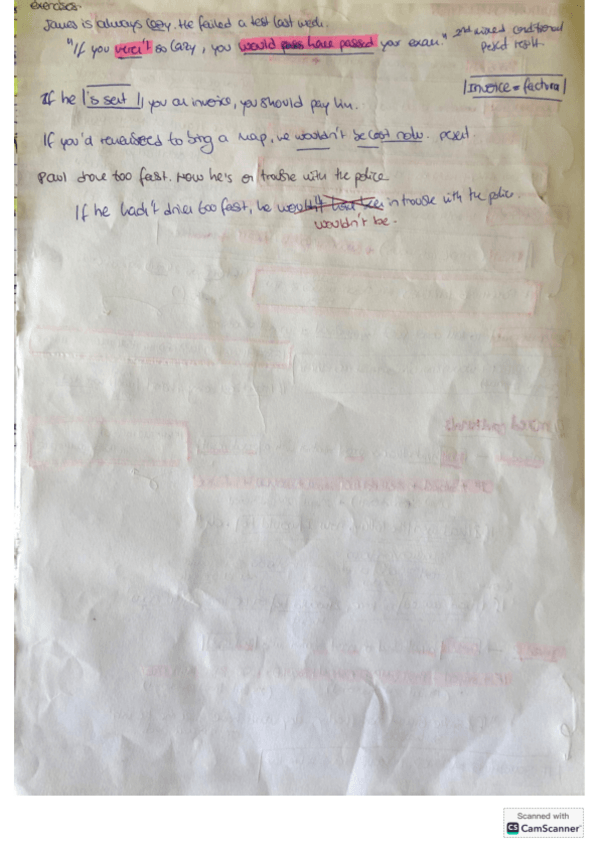 exercises.
James is always lazy. He failed a test last week.
"If you weren't so lazy, you would pass have passed your exam." 2nd mixed conditional
past result.
|Invoice = factura|
If he |'s sent| you an invoice, you should pay him.
If you'd remembered to bring a map, we wouldn't be lost now.
Paul drove too fast. Now he's in trouble with the police
If he hadn't driven too fast, he wouldn't have been in trouble with the police.
wouldn't be.
Scanned with
CS CamScanner